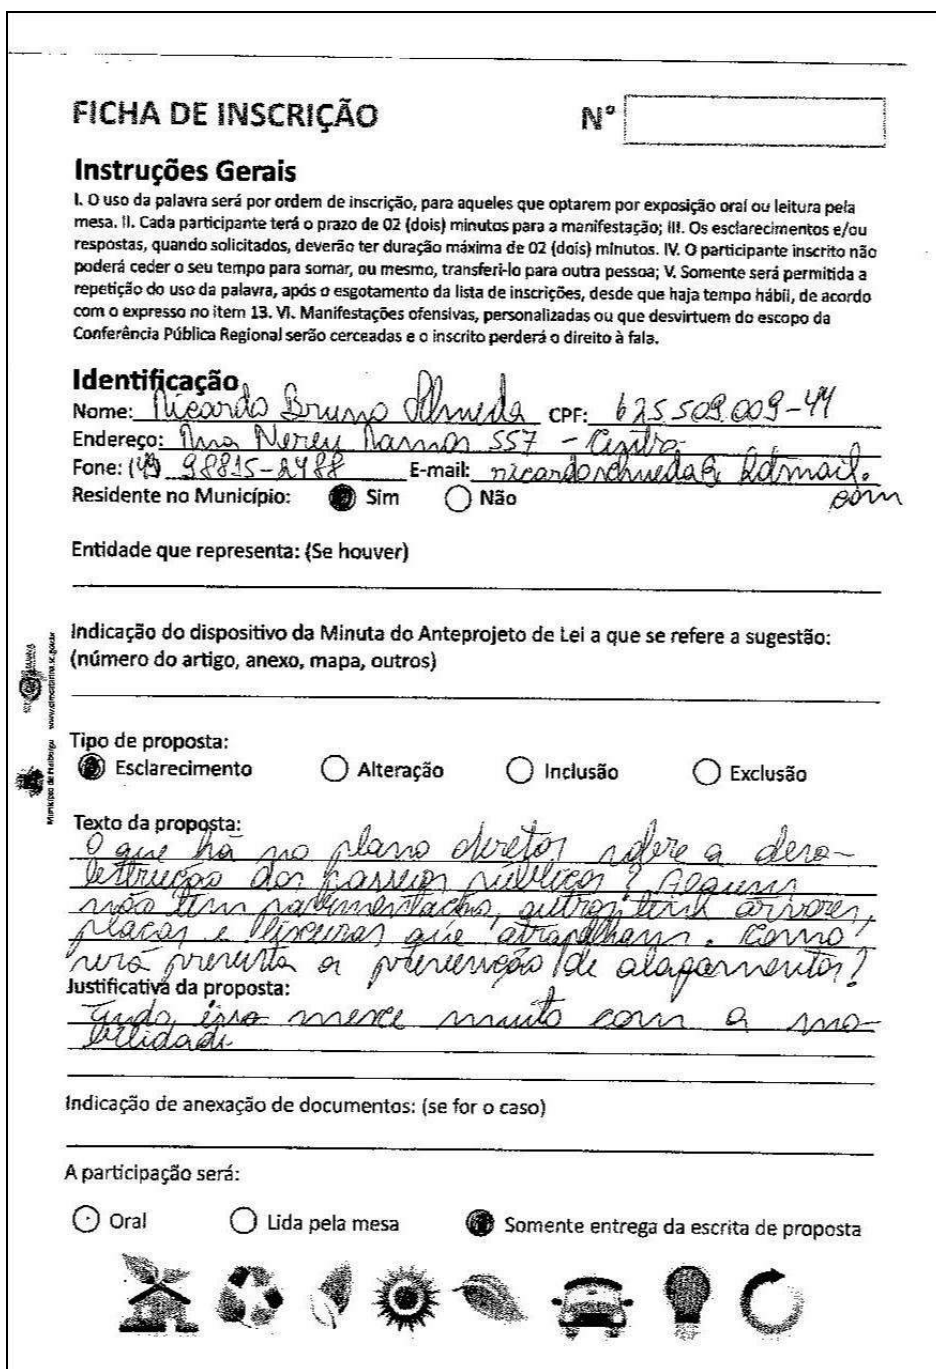 FICHA DE INSCRIÇÃO
Nº
Instruções Gerais
I. O uso da palavra será por ordem de inscrição, para aqueles que optarem por exposição oral ou leitura pela
mesa. II. Cada participante terá o prazo de 02 (dois) minutos para a manifestação; III. Os esclarecimentos e/ou
respostas, quando solicitados, deverão ter duração máxima de 02 (dois) minutos. IV. O participante inscrito não
poderá ceder o seu tempo para somar, ou mesmo, transferi-lo para outra pessoa; V. Somente será permitida a
repetição do uso da palavra, após o esgotamento da lista de inscrições, desde que haja tempo hábil, de acordo
com o expresso no item 13. VI. Manifestações ofensivas, personalizadas ou que desvirtuem do escopo da
Conferência Pública Regional serão cerceadas e o inscrito perderá o direito à fala.
Identificação
Nome: Ricardo Bruno Almeida CPF: 625509.009-44
Endereço: Rua Nereu Ramos 557 - Centro
Fone: (49) 98815-2488 E-mail: @ hotmail.
com
Residente no Município: Sim Não
Entidade que representa: (Se houver)
Indicação do dispositivo da Minuta do Anteprojeto de Lei a que se refere a sugestão:
(número do artigo, anexo, mapa, outros)
Tipo de proposta:
Esclarecimento Alteração Inclusão Exclusão
Texto da proposta:
O que há no plano diretor sobre a deso-
bstrução dos passeios públicos? Alguns
não tem pavimentação, outros tem árvores,
placas e lixeiras que atrapalham. Como
será prevista a prevenção de alagamentos?
Justificativa da proposta:
Tudo isso mexe muito com a mo-
bilidade
Indicação de anexação de documentos: (se for o caso)
A participação será:
Oral Lida pela mesa Somente entrega da escrita de proposta